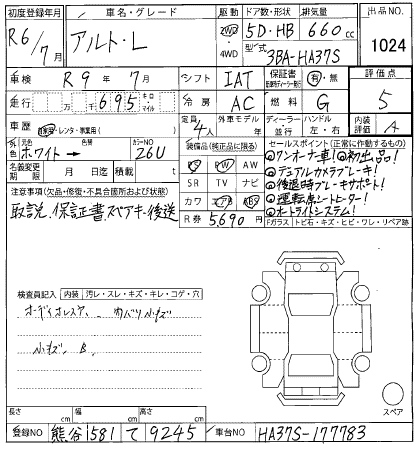 初度登録年月 車名・グレード 駆動 ドア数・形状 排気量 出品NO.
R6/7月 アルト・L 2WD 4WD 5D・HB 660cc 1024
型式 3BA-HA37S
車検 R9年7月 シフト IAT 保証書 有・無 評価点 5
走行 万 千 695 キロ マイル 冷房 AC 燃料 G
車歴 自家用・レンタ・事業用( ) 定員 4人 外車モデル 年 ディーラー 並行 ハンドル 左・右 内装 A
外色 元色 ホワイト→ 色替 カラーNO 26U 装備品(純正品に限る) セールスポイント(正常に作動するもの)
名義変更期限 月 日迄 積載 t PS PW AW ◎ワンオーナー車!◎初出品!
注意事項(欠品・修復・不具合箇所および状態) SR TV ナビ ◎デュアルカメラブレーキ!
取説、保証書、スペアキー後送 カワ エアB ABS ◎後退時ブレーキサポート!
R券 5,690円 ◎運転席シートヒーター!
◎オートライトシステム!
Fガラス トビ石・キズ・ヒビ・ワレ・リペア跡
検査員記入 内装 汚レ・スレ・キズ・キレ・コゲ・穴
オーディオレス
小キズ、B
スペア
長さ cm 幅 cm 高さ cm
登録NO 熊谷 581 て 9245 車台NO HA37S-177783